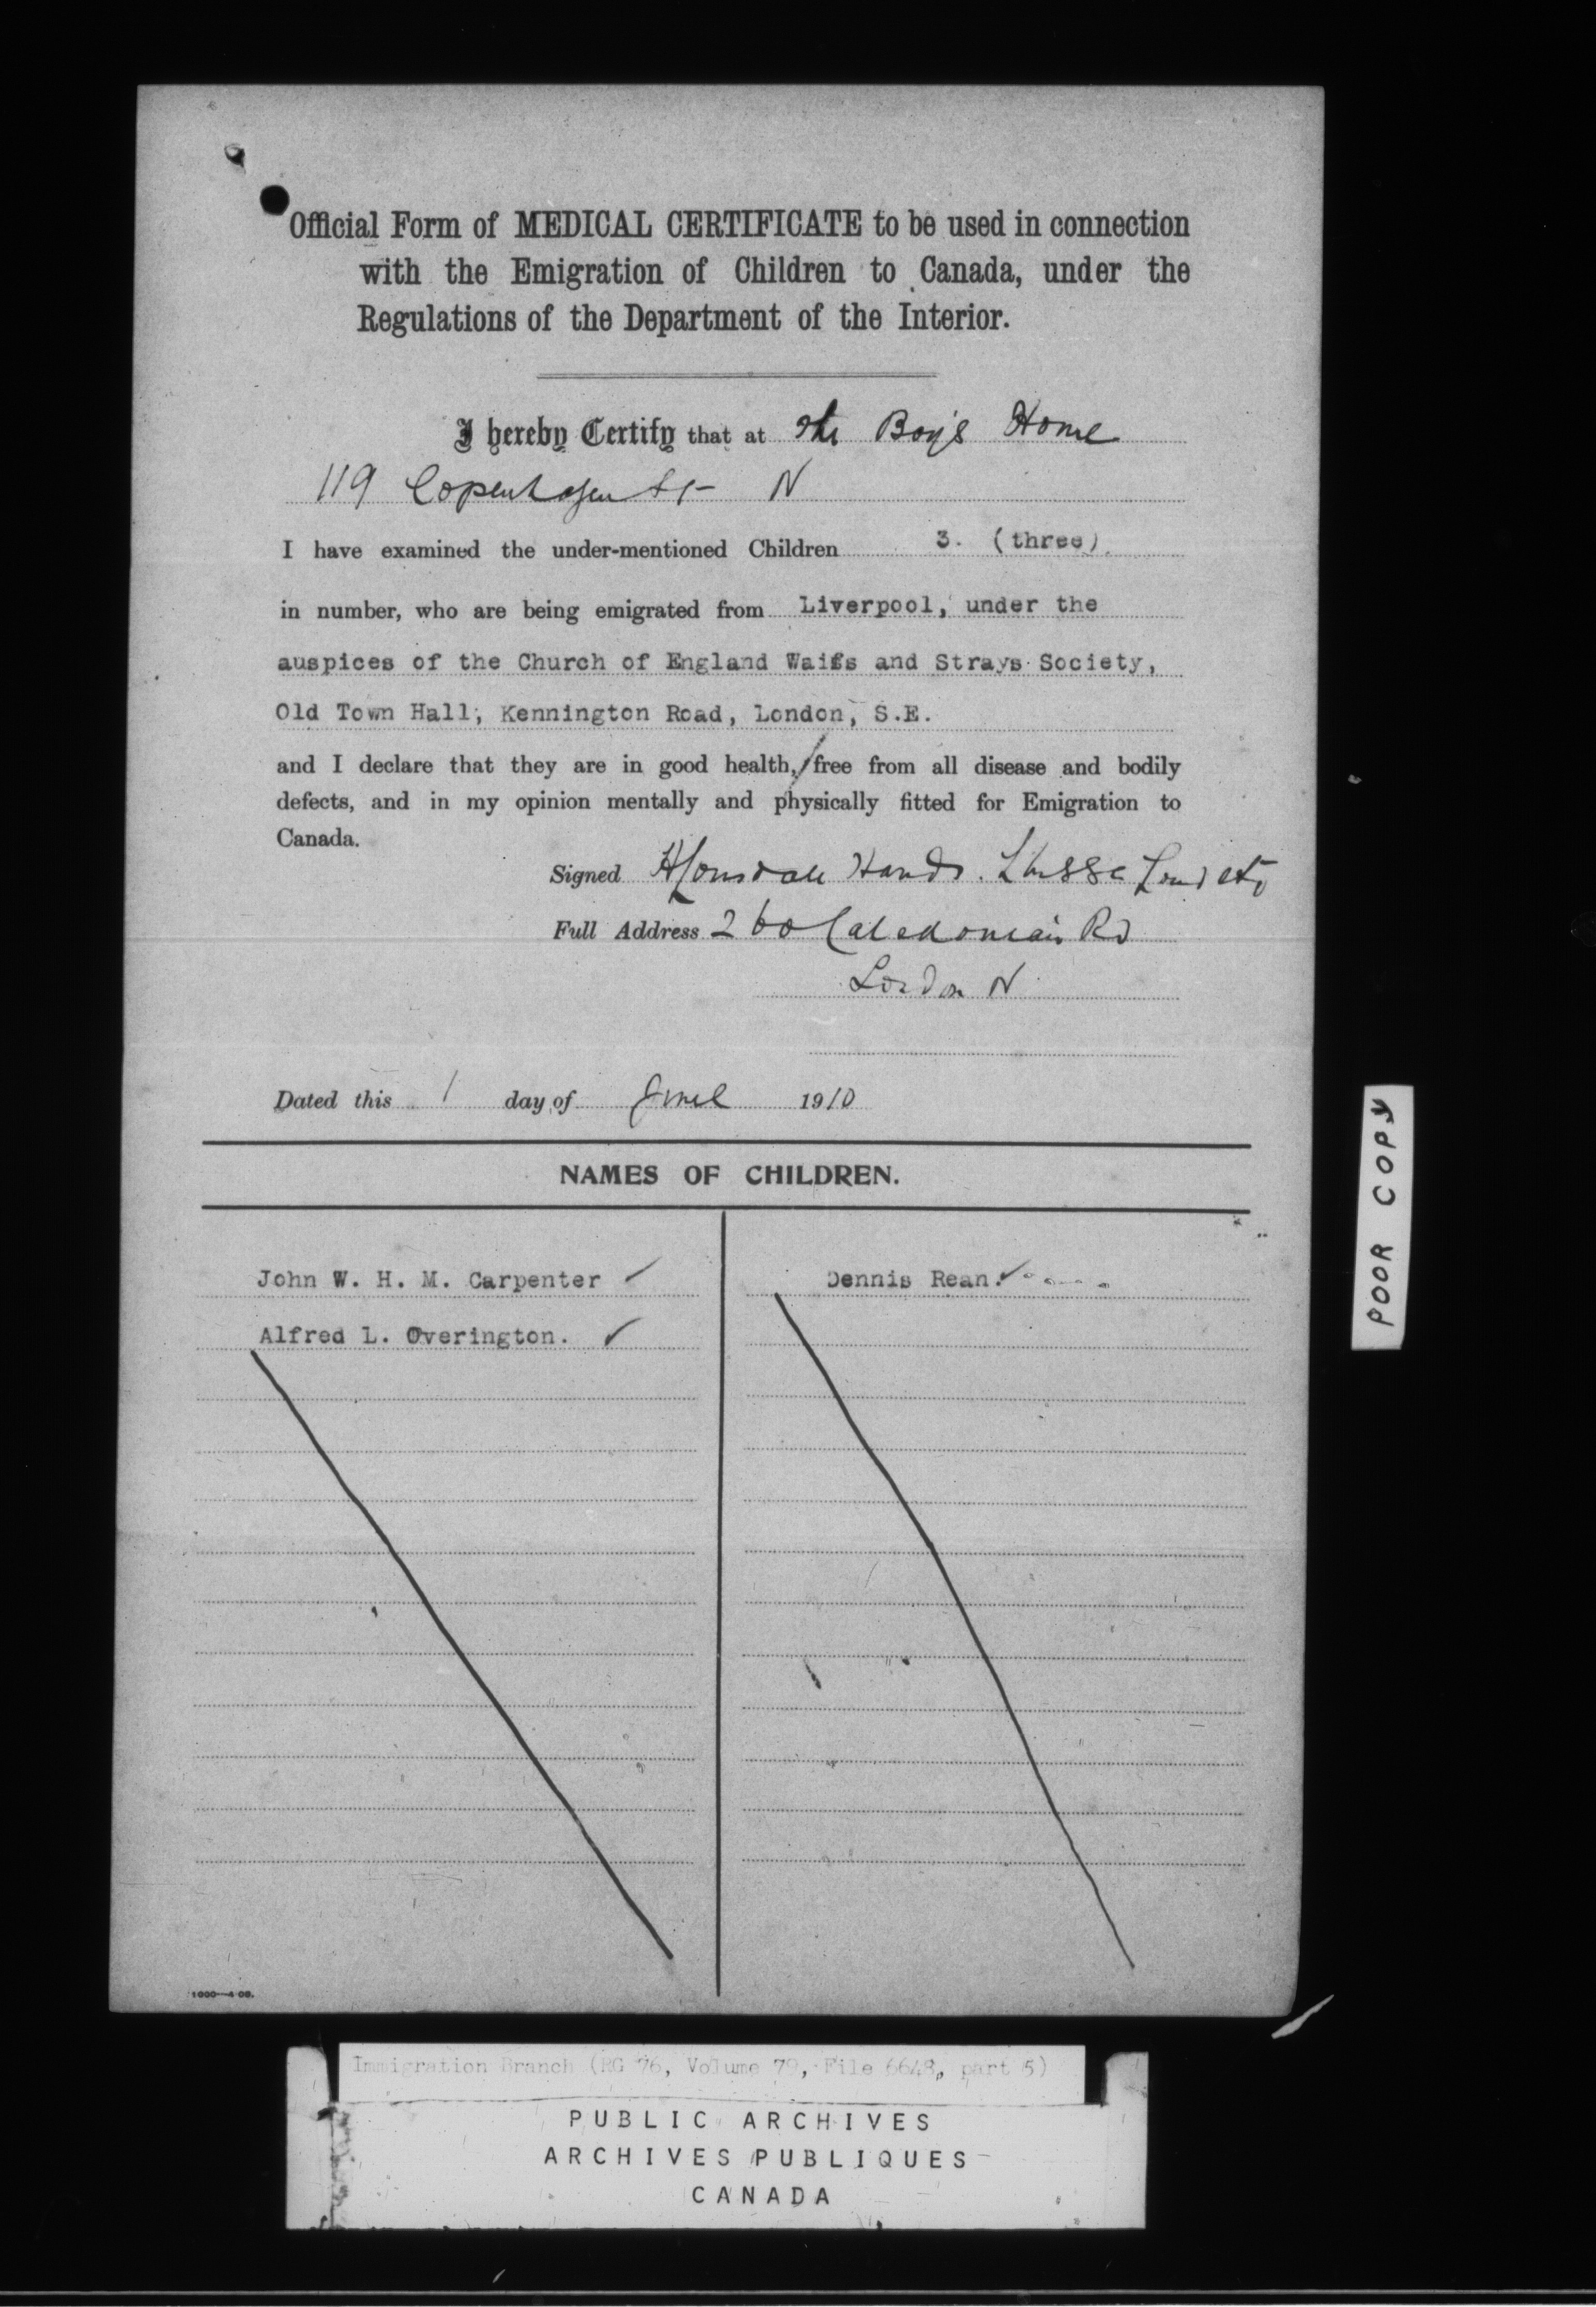 Official Form of MEDICAL CERTIFICATE to be used in connection
with the Emigration of Children to Canada, under the
Regulations of the Department of the Interior.
I hereby Certify that at the Boys Home
119 Copenhagen St N
I have examined the under-mentioned Children 3. (three)
in number, who are being emigrated from Liverpool, under the
auspices of the Church of England Waifs and Strays Society,
Old Town Hall, Kennington Road, London, S.E.
and I declare that they are in good health, free from all disease and bodily
defects, and in my opinion mentally and physically fitted for Emigration to
Canada.
Signed H Lonsdale Hands.
Full Address 260 Caledonian Rd
London N
Dated this 1 day of June 1910
NAMES OF CHILDREN.
John W. H. M. Carpenter ✓
Alfred L. Overington. ✓
Dennis Rean. ✓
1000—4 09.
POOR COPY
Immigration Branch (RG 76, Volume 79, File 6648, part 5)
PUBLIC ARCHIVES
ARCHIVES PUBLIQUES
CANADA